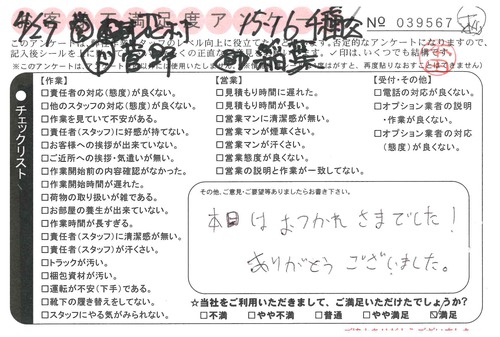 客 満足度ア
No 039567
4/27
15-76-4
菅野
稲葉
このアンケートは
スタッフのレベル向上に役立て
否定的なアンケートになりますので、
記入後シールを
くの正直な
✓印は、いくつでも結構です。
チェックリスト
【作業】
□責任者の対応(態度)が良くない。
□他のスタッフの対応(態度)が良くない。
□作業を見ていて不安がある。
□責任者(スタッフ)に好感が持てない。
□お客様への挨拶が出来ていない。
□ご近所への挨拶・気遣いが無い。
□作業開始前の内容確認がなかった。
□作業開始時間が遅れた。
□荷物の取り扱いが雑である。
□お部屋の養生が出来ていない。
□作業時間が長すぎる。
□責任者(スタッフ)に清潔感が無い。
□責任者(スタッフ)が汗くさい。
□トラックが汚い。
□梱包資材が汚い。
□運転が不安(下手)である。
□靴下の履き替えをしてない。
□スタッフにやる気がみられない。
【営業】
□見積もり時間に遅れた。
□見積もり時間が長い。
□営業マンに清潔感が無い。
□営業マンが煙草くさい。
□営業マンが汗くさい。
□営業態度が良くない。
□営業の説明と作業が一致してない。
【受付・その他】
□電話の対応が良くない。
□オプション業者の説明
・作業が良くない。
□オプション業者の対応
(態度)が良くない。
その他、ご意見・ご要望等ありましたらお書き下さい。
本日はおつかれさまでした!
ありがとうございました。
☆当社をご利用いただきまして、ご満足いただけたでしょうか?
□不満 □やや不満 □普通 □やや満足 ☑満足